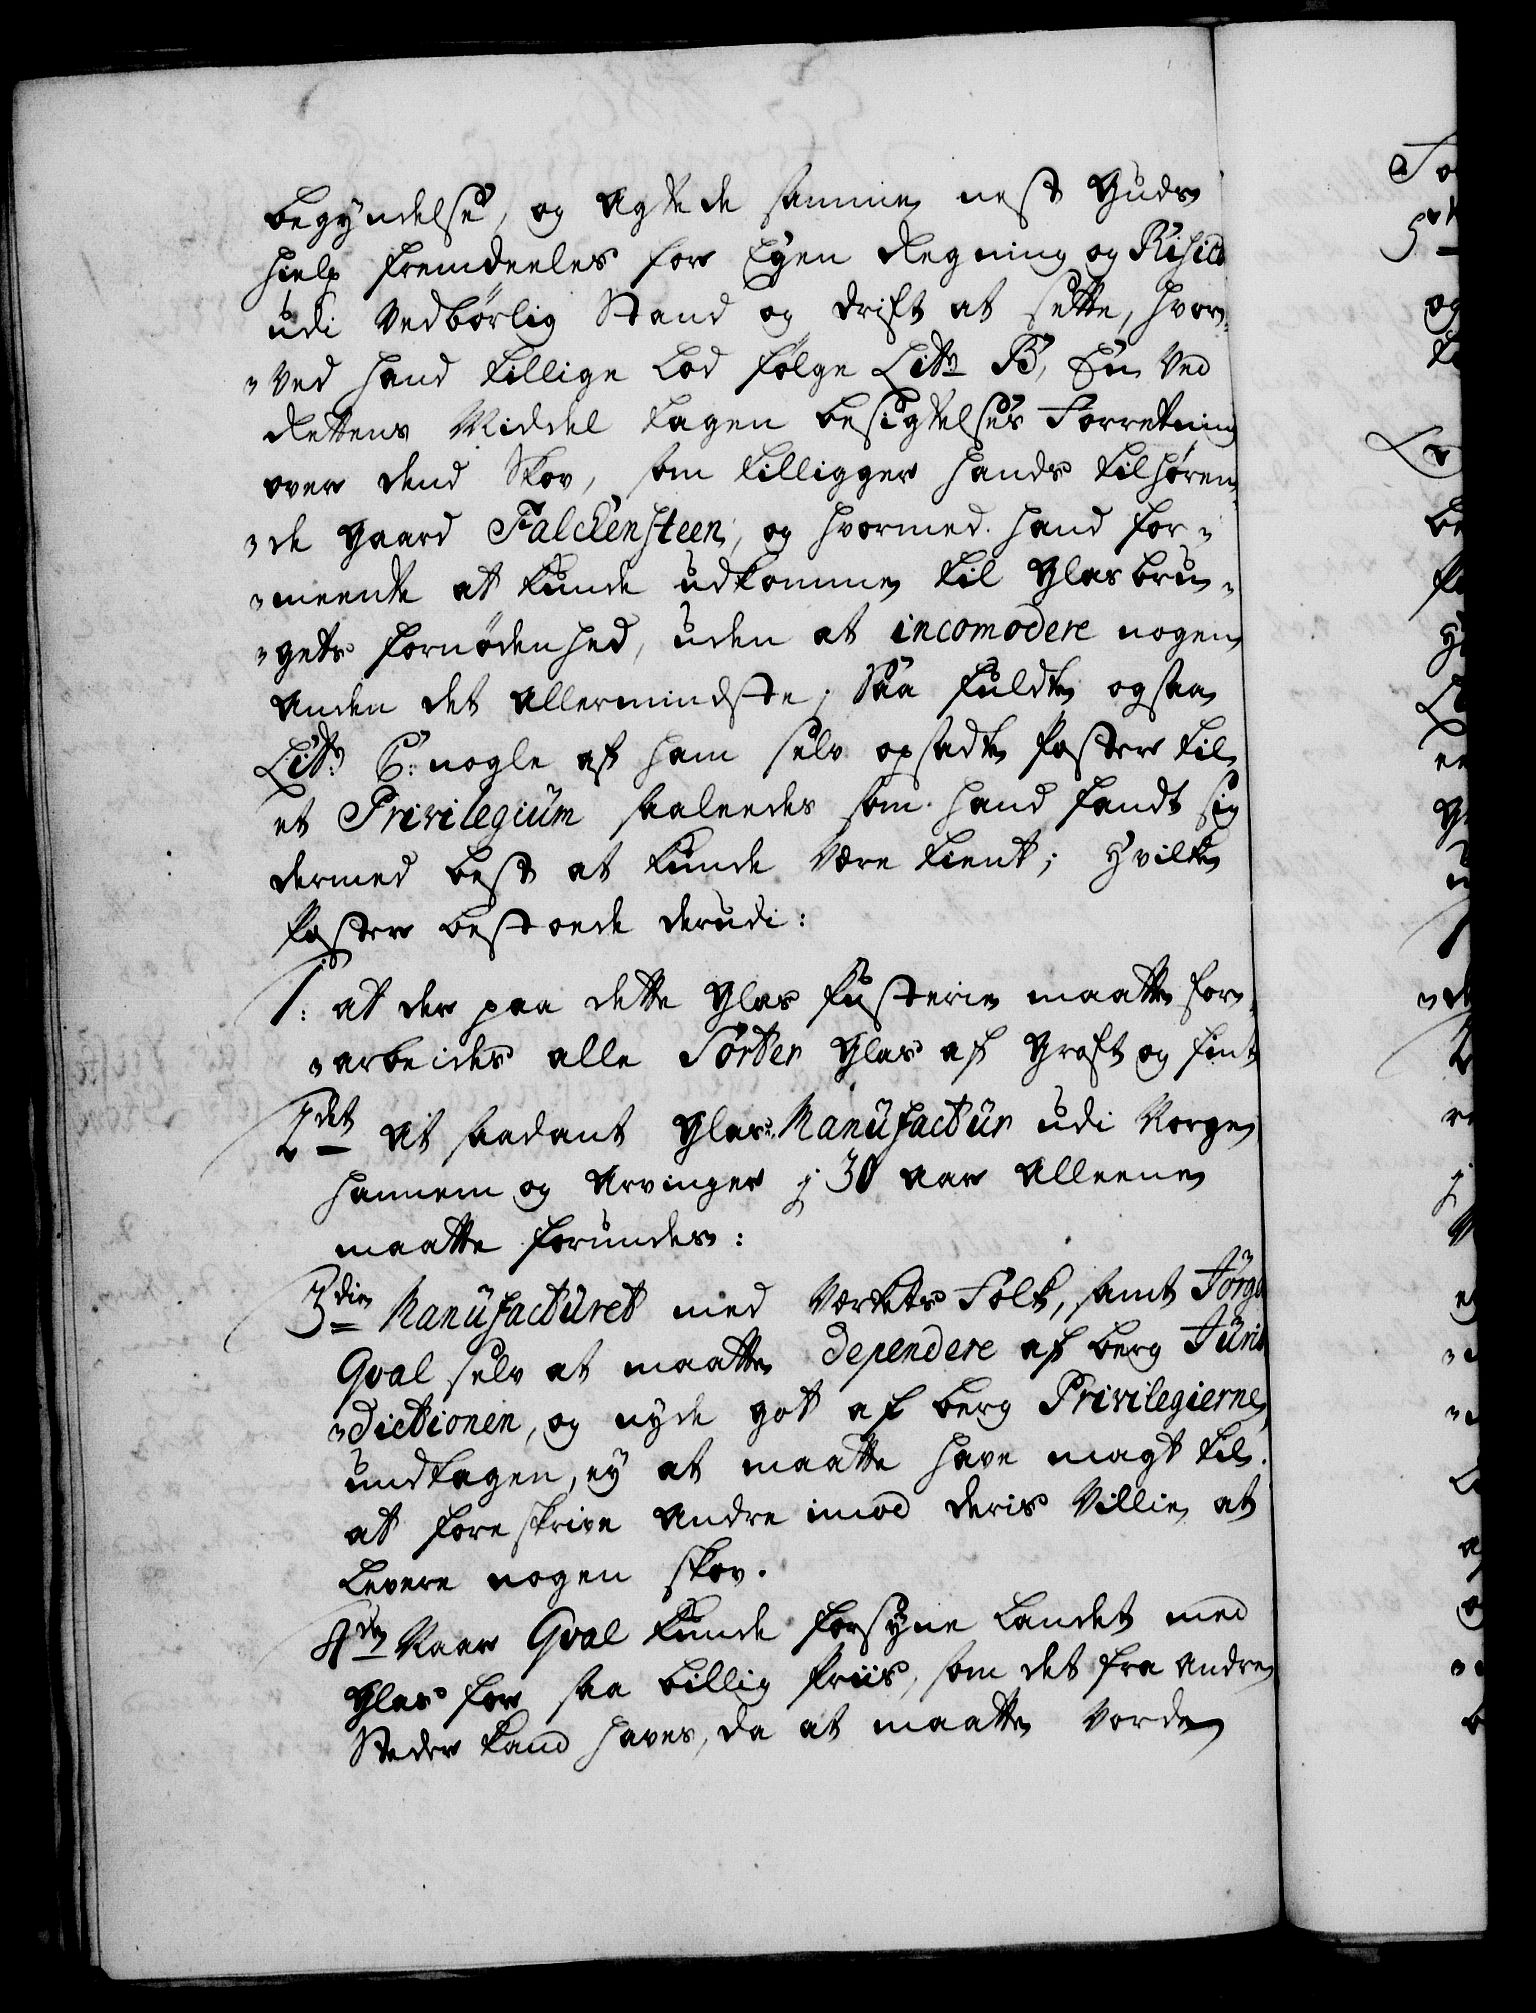 begyndelse, og agtede samme nest Guds
hielp fremdeeles for Egen Regning og Risico
udi Vedbørlig Stand og drift at sette, hvor-
-ved hand tillige Lod følge Litr B, En Ved
Rettens Middel tagen besigtelses Forretning
over dend Skov, som tilligger hands tilhøren-
-de gaard Falckensteen, og hvormed hand for-
-meente at kunde udkomme til Glasbru-
-gets fornødenhed, uden at incomodere nogen
anden det allermindste; Saa fuldte ogsaa
Litr: C: nogle af ham selv opsadte Poster til
et Privilegium saaleedes som hand fandt sig
dermed best at kunde være tient; Hvilke
Poster bestoede derudi:
1: at der paa dette Glas Pusterie maatte for-
-arbeides alle Sorter Glas af groft og fint
2det At saadant Glas-Manufactur udi Norge
hannem og Arvinger j 30 aar alleene
maatte forundes:
3die Manufacturet med Verkets Folk, samt Jørgen
Qval selv at maatte dependere af berg Juris-
-dictionen, og nyde got af berg Privilegierne,
undtagen, ey at maatte have magt til
at foreskrive andre imod deris Villie at
Levere nogen skov.
4de Naar Qval kunde forsyne Landet med
Glas for saa billig Priis, som det fra andre
Steder kand haves, da at maatte vorde